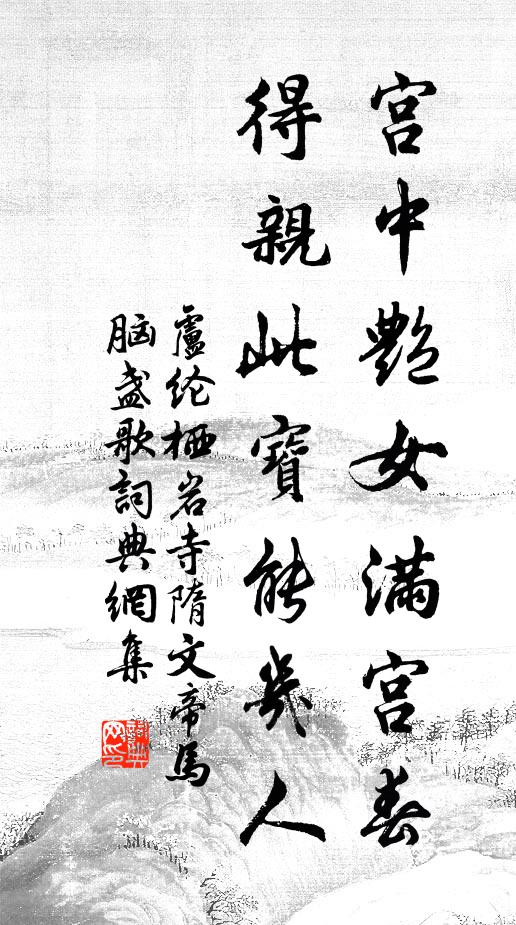 宮中艷女滿宮春
得親此寶能幾人
盧綸栖岩寺隋文帝馬
脑盏歌詞典網集